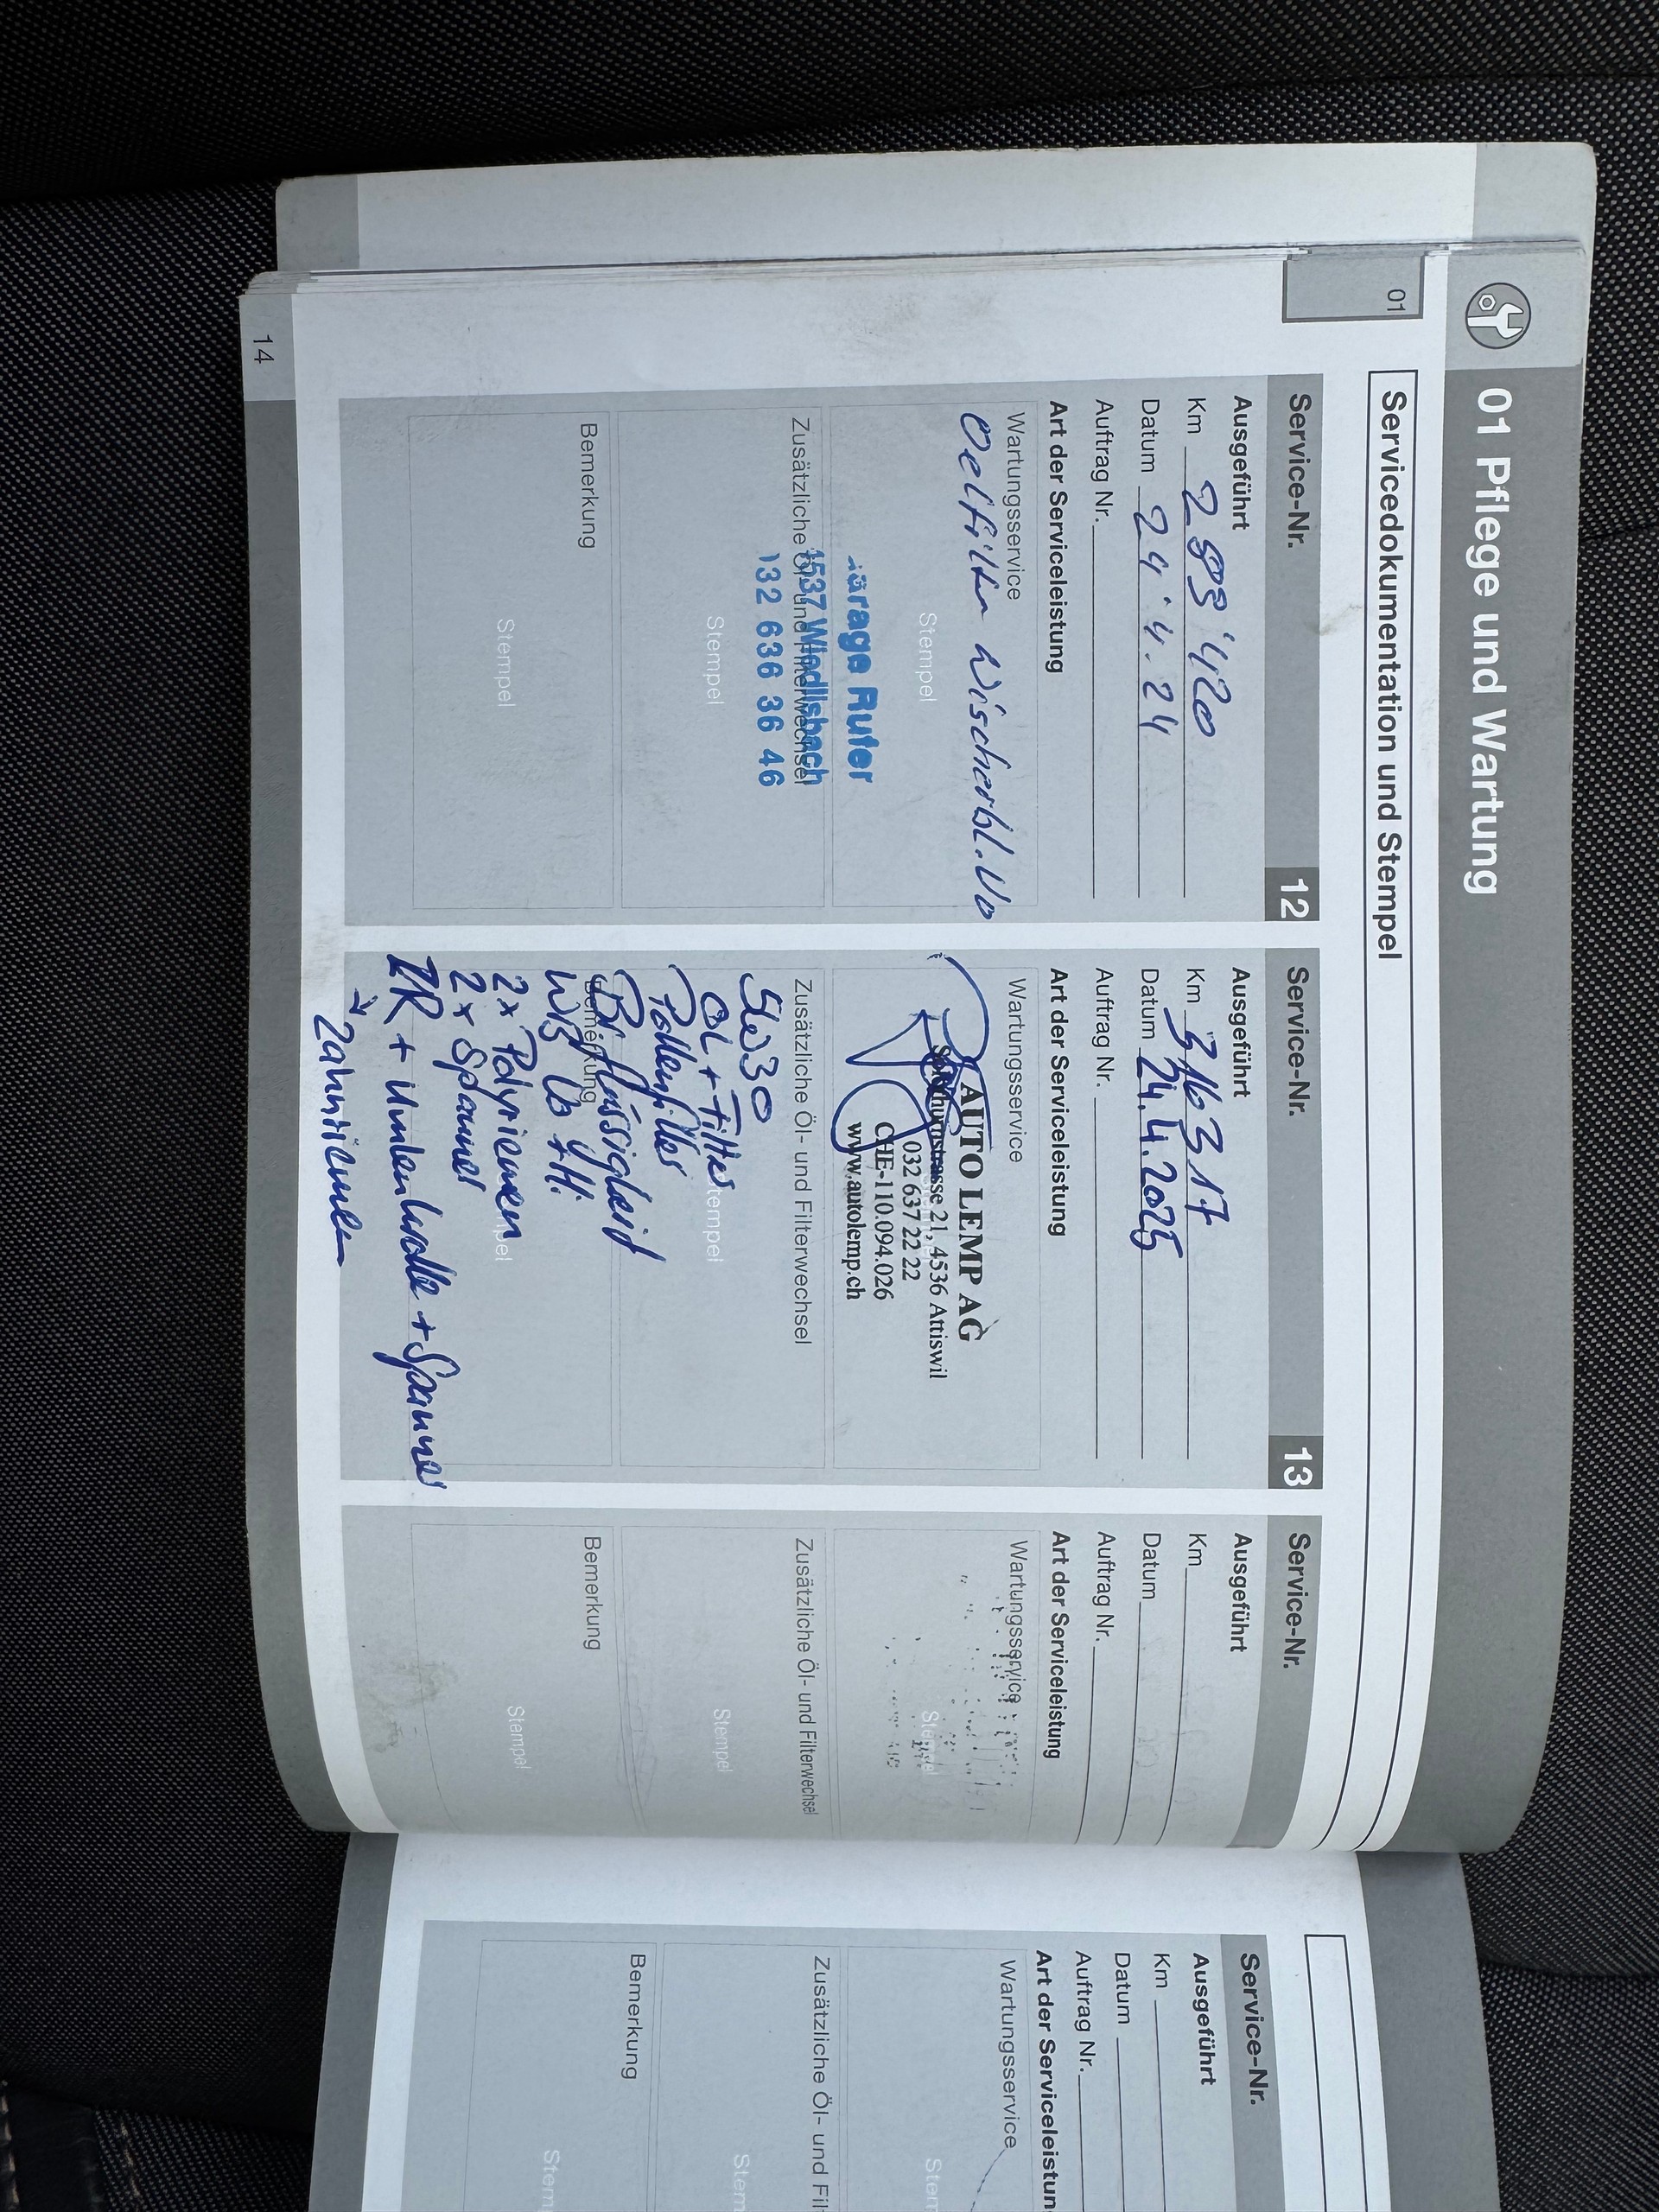 01 Pflege und Wartung
01
Servicedokumentation und Stempel
Service-Nr. 12
Ausgeführt
Km 293'420
Datum 24.4.24
Auftrag Nr.
Art der Serviceleistung
Wartungsservice
Oelfilter Wischerbl. Vo
Stempel
arage Rufer
Zusätzliche Öl- und Filterwechsel
4537 Wiedlisbach
032 636 36 46
Stempel
Bemerkung
Stempel
14
Service-Nr. 13
Ausgeführt
Km 316317
Datum 24.4.2025
Auftrag Nr.
Art der Serviceleistung
Wartungsservice
AUTO LEMP AG
Solothurnstrasse 21, 4536 Attiswil
032 637 22 22
CHE-110.094.026
www.autolemp.ch
Zusätzliche Öl- und Filterwechsel
5w30
ÖL + Filter
Stempel
Pollenfilter
Br. flüssigkeit
Bemerkung
WB Vo + Hi
2x Polyriemen
Stempel
2x Spanner
ZR + Umlenkrolle + Spanner
↳ Zahnriemen
Service-Nr.
Ausgeführt
Km
Datum
Auftrag Nr.
Art der Serviceleistung
Wartungsservice
Stempel
Zusätzliche Öl- und Filterwechsel
Stempel
Bemerkung
Stempel
Service-Nr.
Ausgeführt
Km
Datum
Auftrag Nr.
Art der Serviceleistun
Wartungsservice
Stem
Zusätzliche Öl- und Fil
Stem
Bemerkung
Stem